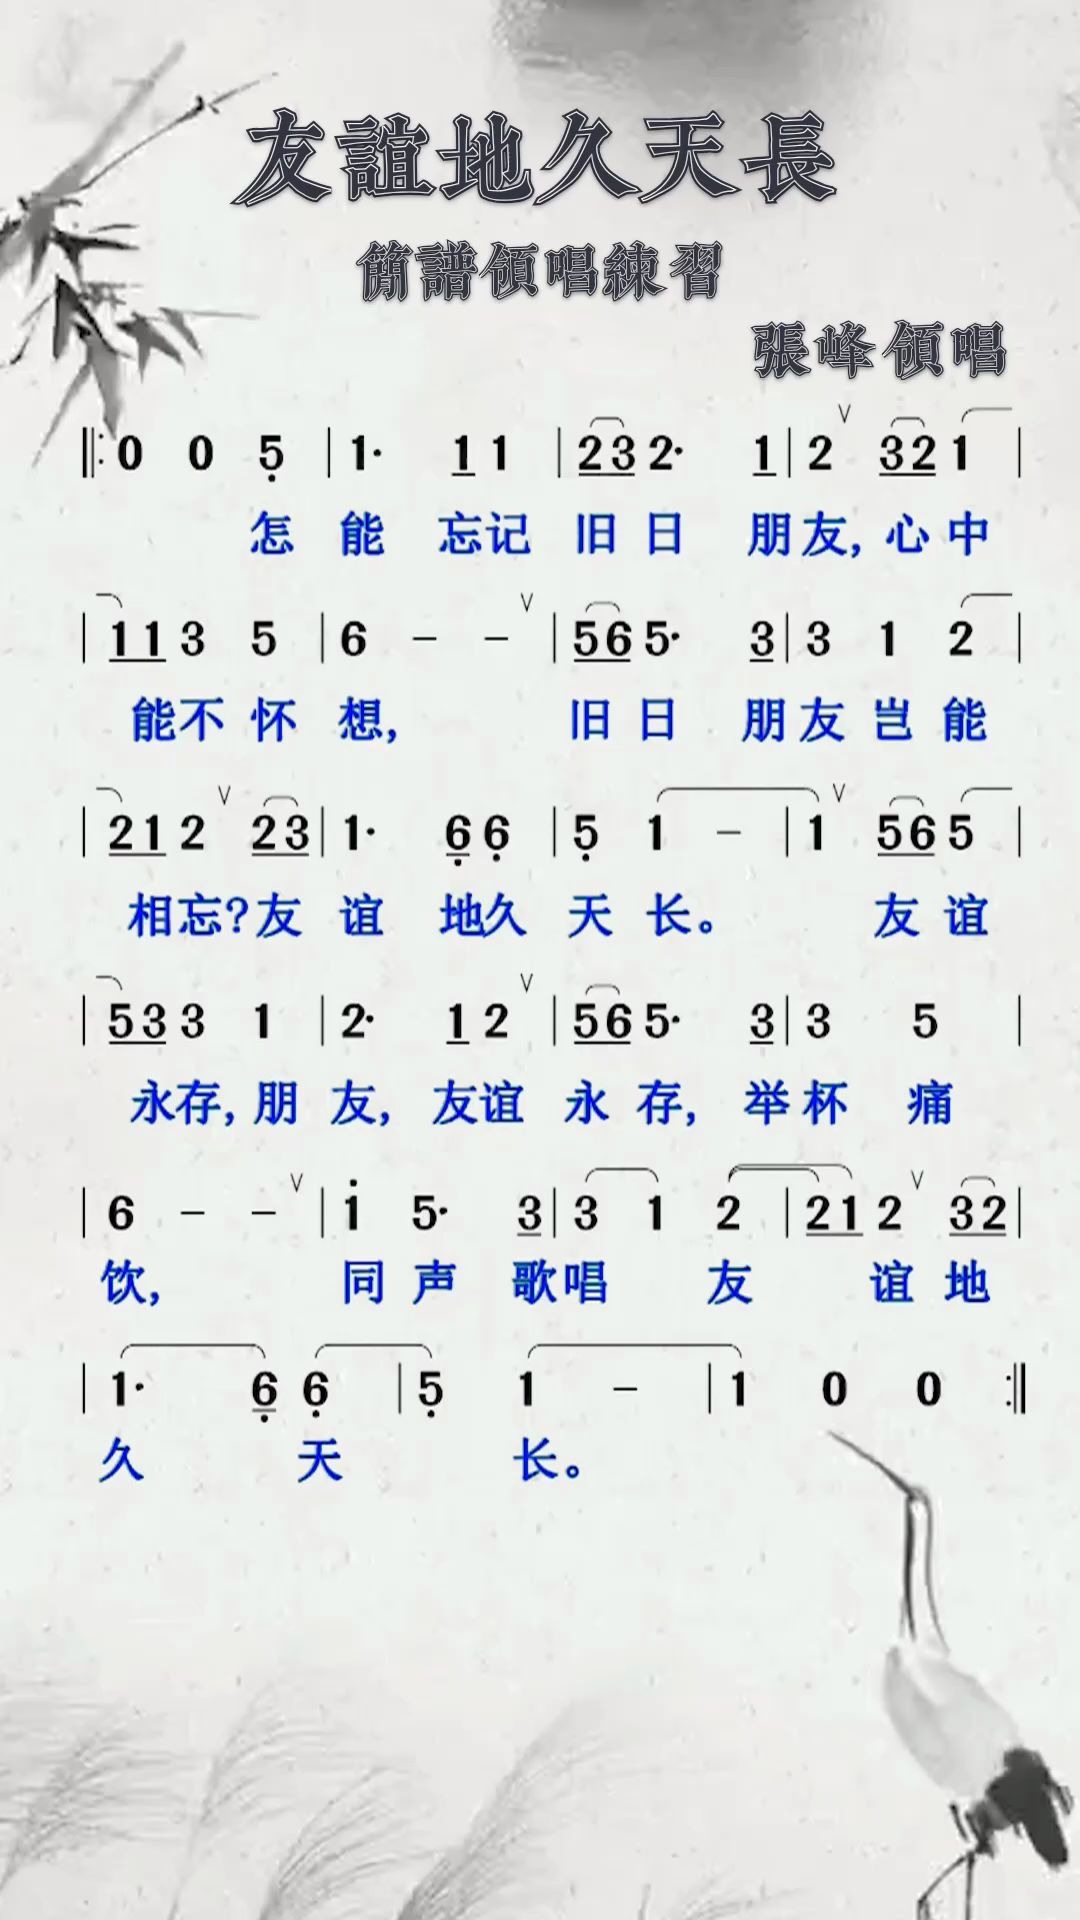 友誼地久天長
簡譜領唱練習
張峰領唱
‖: 0 0 5̣ | 1· 1̲ 1 | 2̲3̲ 2· 1̲ | 2 ∨ 3̲2̲ 1 |
怎 能 忘记 旧 日 朋友, 心 中
| 1̲1̲ 3 5 | 6 – – ∨ | 5̲6̲ 5· 3̲ | 3 1 2 |
能不 怀 想, 旧 日 朋友 岂 能
| 2̲1̲ 2 ∨ 2̲3̲ | 1· 6̣̲ 6̣ | 5̣ 1 – | 1 ∨ 5̲6̲ 5 |
相忘?友 谊 地久 天 长。 友 谊
| 5̲3̲ 3 1 | 2· 1̲ 2 ∨ | 5̲6̲ 5· 3̲ | 3 5 |
永存, 朋 友, 友谊 永 存, 举杯 痛
| 6 – – ∨ | 1̇ 5· 3̲ | 3 1 2 | 2̲1̲ 2 ∨ 3̲2̲ |
饮, 同 声 歌唱 友 谊 地
| 1· 6̣̲ 6̣ | 5̣ 1 – | 1 0 0 :‖
久 天 长。